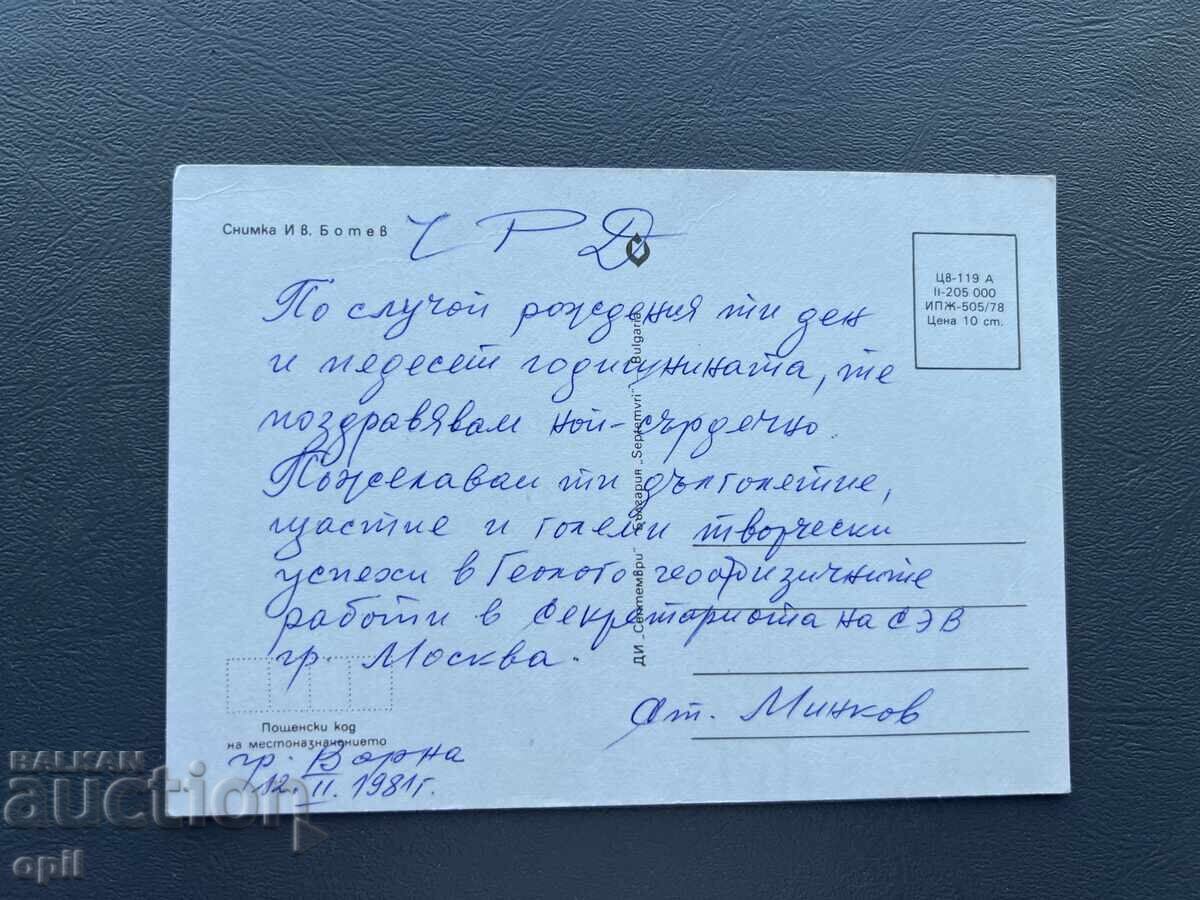 Снимка Ив. Ботев
Ч Р Д
ЦВ-119 А
II-205 000
ИПЖ-505/78
Цена 10 ст.
По случай рождения ти ден
и педесет годишнината, те
поздравявам най-сърдечно.
Пожелавам ти дълголетие,
щастие и големи творчески
успехи в Геолого геофизичните
работи в Секретариата на СЭВ
гр. Москва.
Ст. Минков
ДИ „Септември" България „Septemvri" Bulgaria
Пощенски код
на местоназначението
гр. Варна
12. II. 1981г.
BALKAN
auction
opil